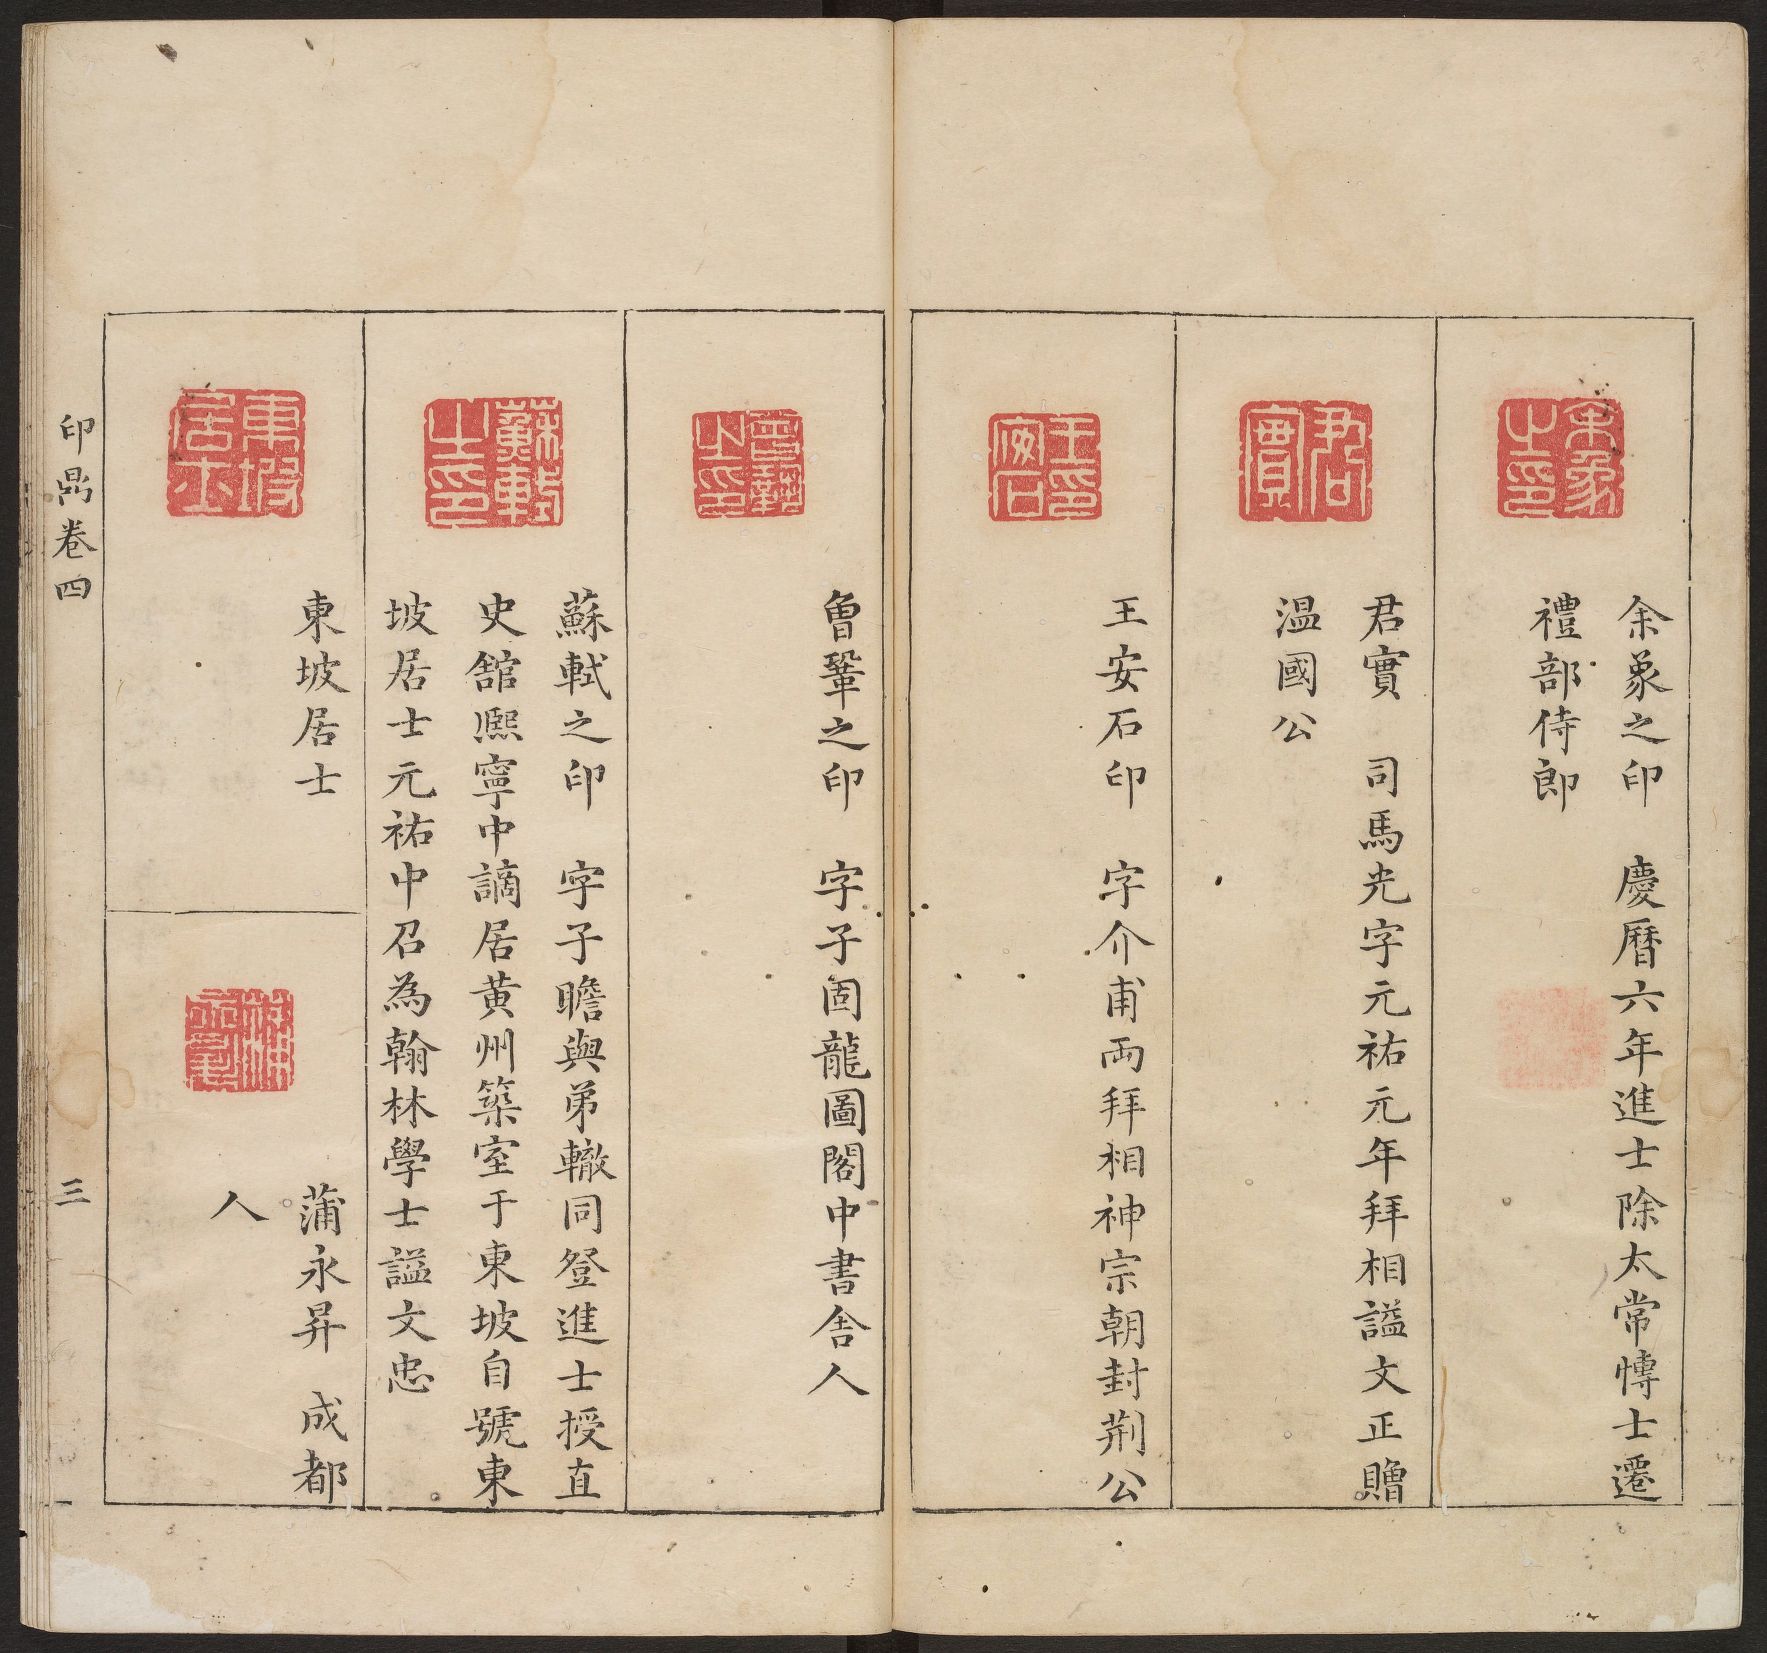 余象之印　慶曆六年進士除太常愽士遷
禮部侍郎
君實　司馬光字元祐元年拜相謚文正贈
溫國公
王安石印　字介甫两拜相神宗朝封荆公
曾鞏之印　字子固龍圖閣中書舍人
蘇軾之印　字子瞻與弟轍同登進士授直
史舘熈寧中謫居黄州築室于東坡自號東
坡居士元祐中召為翰林學士謚文忠
東坡居士
蒲永昇　成都
人
印鼎卷四
三
余象之印
君實
王安石印
曾鞏之印
蘇軾之印
東坡居士